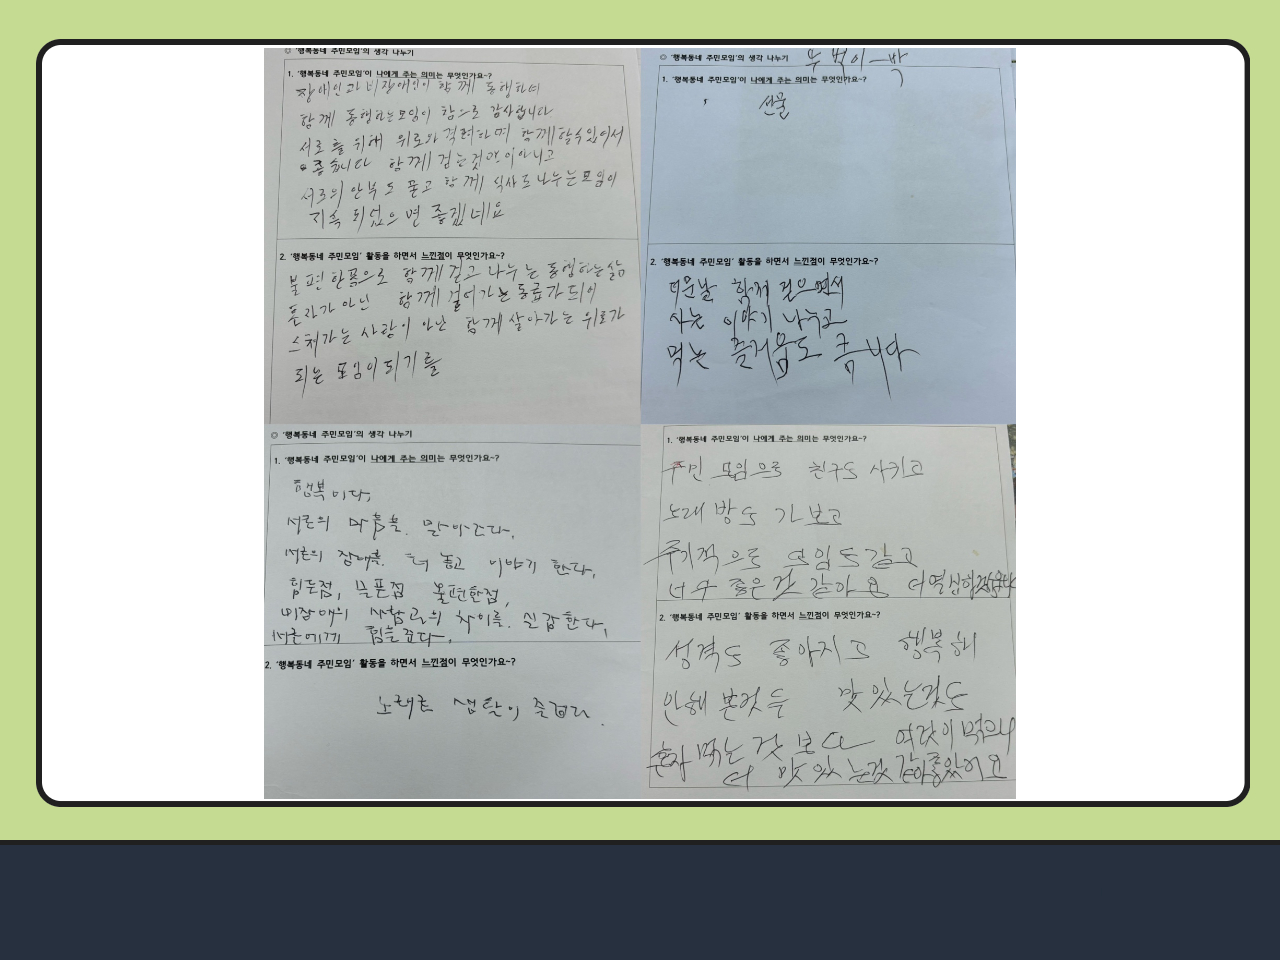 ◎ '행복동네 주민모임'의 생각 나누기
1. '행복동네 주민모임'이 나에게 주는 의미는 무엇인가요~?
장애인과 비장애인이 함께 동행하며
함께 동행하는모임이 함으로 감사합니다
서로를 위해 위로와 격려하며 함께할수있어서
좋습니다 함께 걷는것만이아니고
서로의 안부도 묻고 함께 식사로 나누는 모임이
지속 되었으면 좋겠네요
2. '행복동네 주민모임' 활동을 하면서 느낀점이 무엇인가요~?
불편한몸으로 함께걷고 나누는 동행하는삶
혼자가 아닌 함께 걸어가는동료가 되어
스쳐가는 사람이 아닌 함께 살아가는 위로가
되는 모임이되기를
◎ '행복동네 주민모임'의 생각 나누기
1. '행복동네 주민모임'이 나에게 주는 의미는 무엇인가요~?
선물
2. '행복동네 주민모임' 활동을 하면서 느낀점이 무엇인가요~?
더운날 함께 걸으면서
사는 이야기 나누고
먹는 즐거움도 큽니다
◎ '행복동네 주민모임'의 생각 나누기
1. '행복동네 주민모임'이 나에게 주는 의미는 무엇인가요~?
행복이다,
서로의 마음을. 알아간다,
서로의 장애를. 터 놓고 이야기 한다,
힘든점, 아픈점 불편한점,
비장애의 사람과의 차이를. 실감한다,
서로에게 힘을준다,
2. '행복동네 주민모임' 활동을 하면서 느낀점이 무엇인가요~?
노래로 생활이 즐겁다.
1. '행복동네 주민모임'이 나에게 주는 의미는 무엇인가요~?
주민 모임으로 친구도 사키고
노래방도 가보고
주기적으로 모임도갖고
너무 좋은것 같아요
2. '행복동네 주민모임' 활동을 하면서 느낀점이 무엇인가요~?
성격도 좋아지고 행복해
안해 본것두 맛있는것도
혼자 먹는 것 보다 여럿이 먹으니
더 맛있는것 같아좋았어요